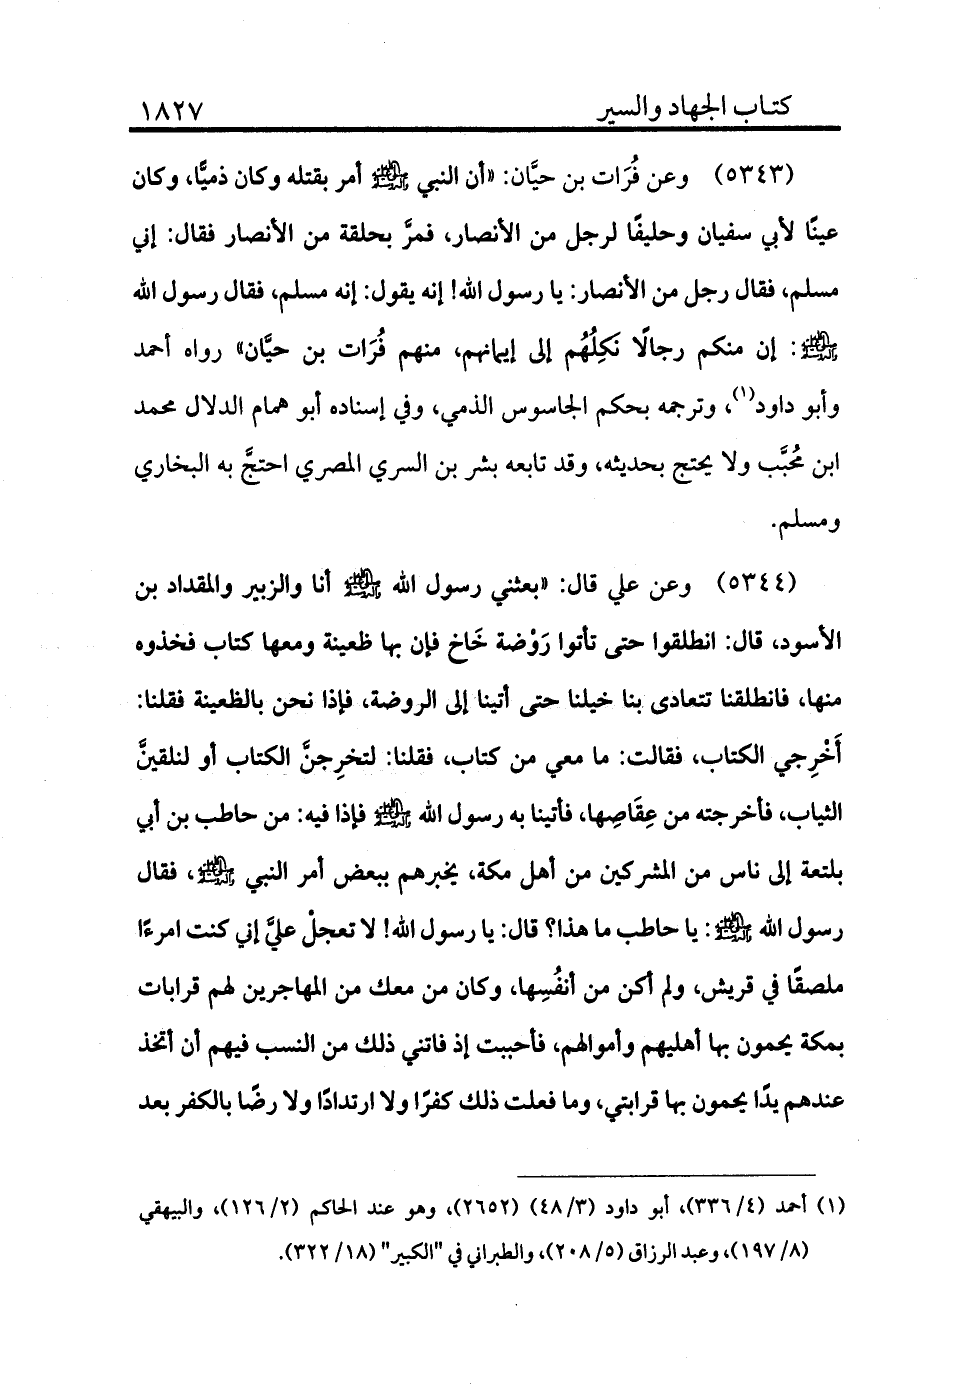 كتاب الجهاد والسير ١٨٢٧
(٥٣٤٣) وعن فُرَات بن حيَّان: «أن النبي ﷺ أمر بقتله وكان ذميًّا، وكان
عينًا لأبي سفيان وحليفًا لرجل من الأنصار، فمرَّ بحلقة من الأنصار فقال: إني
مسلم، فقال رجل من الأنصار: يا رسول الله! إنه يقول: إنه مسلم، فقال رسول الله
ﷺ: إن منكم رجالًا نَكِلُهُم إلى إيمانهم، منهم فُرَات بن حيَّان» رواه أحمد
وأبو داود(١)، وترجمه بحكم الجاسوس الذمي، وفي إسناده أبو همام الدلال محمد
ابن مُحبَّب ولا يحتج بحديثه، وقد تابعه بشر بن السري المصري احتجَّ به البخاري
ومسلم.
(٥٣٤٤) وعن علي قال: «بعثني رسول الله ﷺ أنا والزبير والمقداد بن
الأسود، قال: انطلقوا حتى تأتوا رَوْضة خَاخ فإن بها ظعينة ومعها كتاب فخذوه
منها، فانطلقنا تتعادى بنا خيلنا حتى أتينا إلى الروضة، فإذا نحن بالظعينة فقلنا:
أَخْرِجي الكتاب، فقالت: ما معي من كتاب، فقلنا: لتخرِجنَّ الكتاب أو لنلقينَّ
الثياب، فأخرجته من عِقَاصِها، فأتينا به رسول الله ﷺ فإذا فيه: من حاطب بن أبي
بلتعة إلى ناس من المشركين من أهل مكة، يخبرهم ببعض أمر النبي ﷺ، فقال
رسول الله ﷺ: يا حاطب ما هذا؟ قال: يا رسول الله! لا تعجلْ عليَّ إني كنت امرءًا
ملصقًا في قريش، ولم أكن من أنفُسِها، وكان من معك من المهاجرين لهم قرابات
بمكة يحمون بها أهليهم وأموالهم، فأحببت إذ فاتني ذلك من النسب فيهم أن أتخذ
عندهم يدًا يحمون بها قرابتي، وما فعلت ذلك كفرًا ولا ارتدادًا ولا رضًا بالكفر بعد
(١) أحمد (٤/ ٣٣٦)، أبو داود (٣/ ٤٨) (٢٦٥٢)، وهو عند الحاكم (٢/ ١٢٦)، والبيهقي
(٨/ ١٩٧)، وعبد الرزاق (٥/ ٢٠٨)، والطبراني في "الكبير" (١٨/ ٣٢٢).